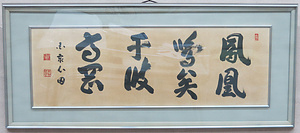 鳳凰
鳴矣
于彼
高岡